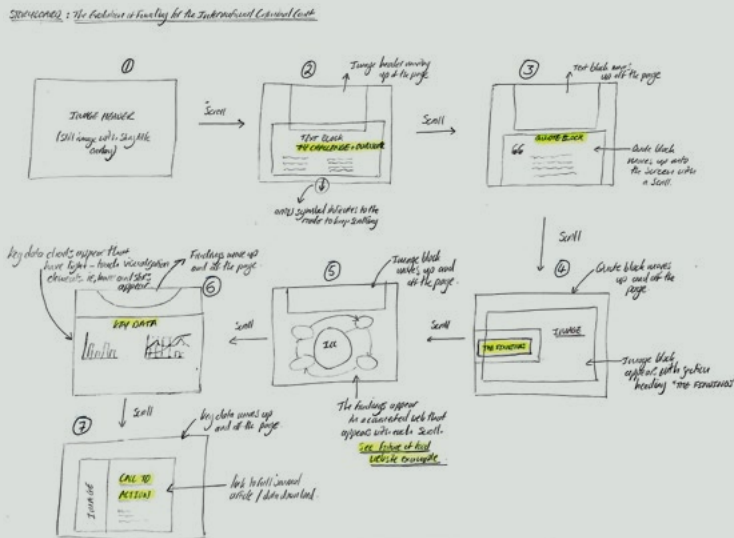 STORYBOARD : The Evolution of Funding for the International Criminal Court
①
IMAGE HEADER
(Still image with
Scroll
②
Image header moving
up of the page
TEXT BLOCK
THE CHALLENGE +
symbol indicates to the
reader to keep scrolling
Scroll
③
Text block moves
up off the page
QUOTE BLOCK
66
Quote block
moves up onto
the screen with
a scroll.
Scroll
④
Quote block moves
up and off the
page.
IMAGE
THE FINDINGS
Image block
appears with section
heading "THE FINDINGS"
Scroll
⑤
Image block
moves up and
off the page.
ICC
The findings appear
in a connected web that
appears with each scroll.
see future of food
website example
Scroll
⑥
Findings move up
and off the page.
key data charts appear that
have light-touch visualisation
elements ie,
appear
KEY DATA
Scroll
⑦
key data moves up
and off the page.
IMAGE
CALL TO
ACTION
link to full journal
article / data download.